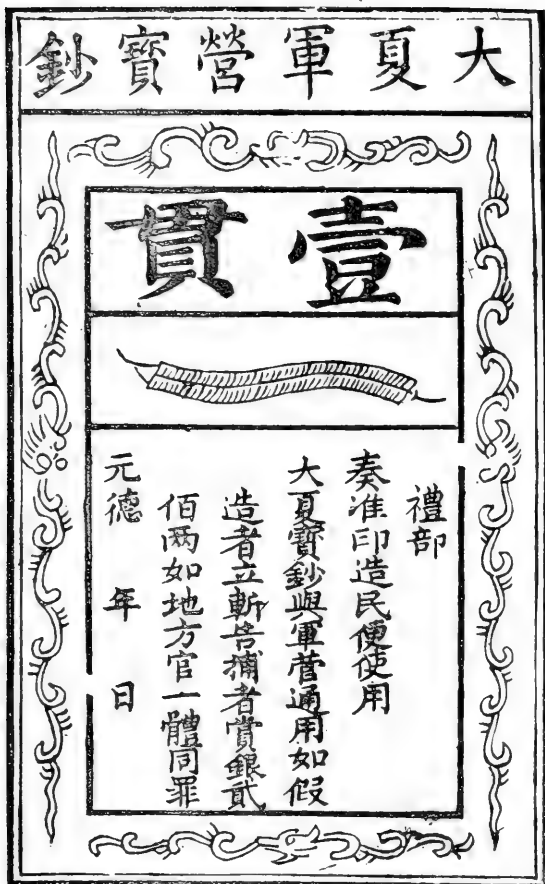 大夏軍營寶鈔
壹貫
禮部
奏准印造民便使用
大夏寶鈔與軍營通用如假
造者立斬告捕者賞銀貳
佰两如地方官一體同罪
元德 年 日